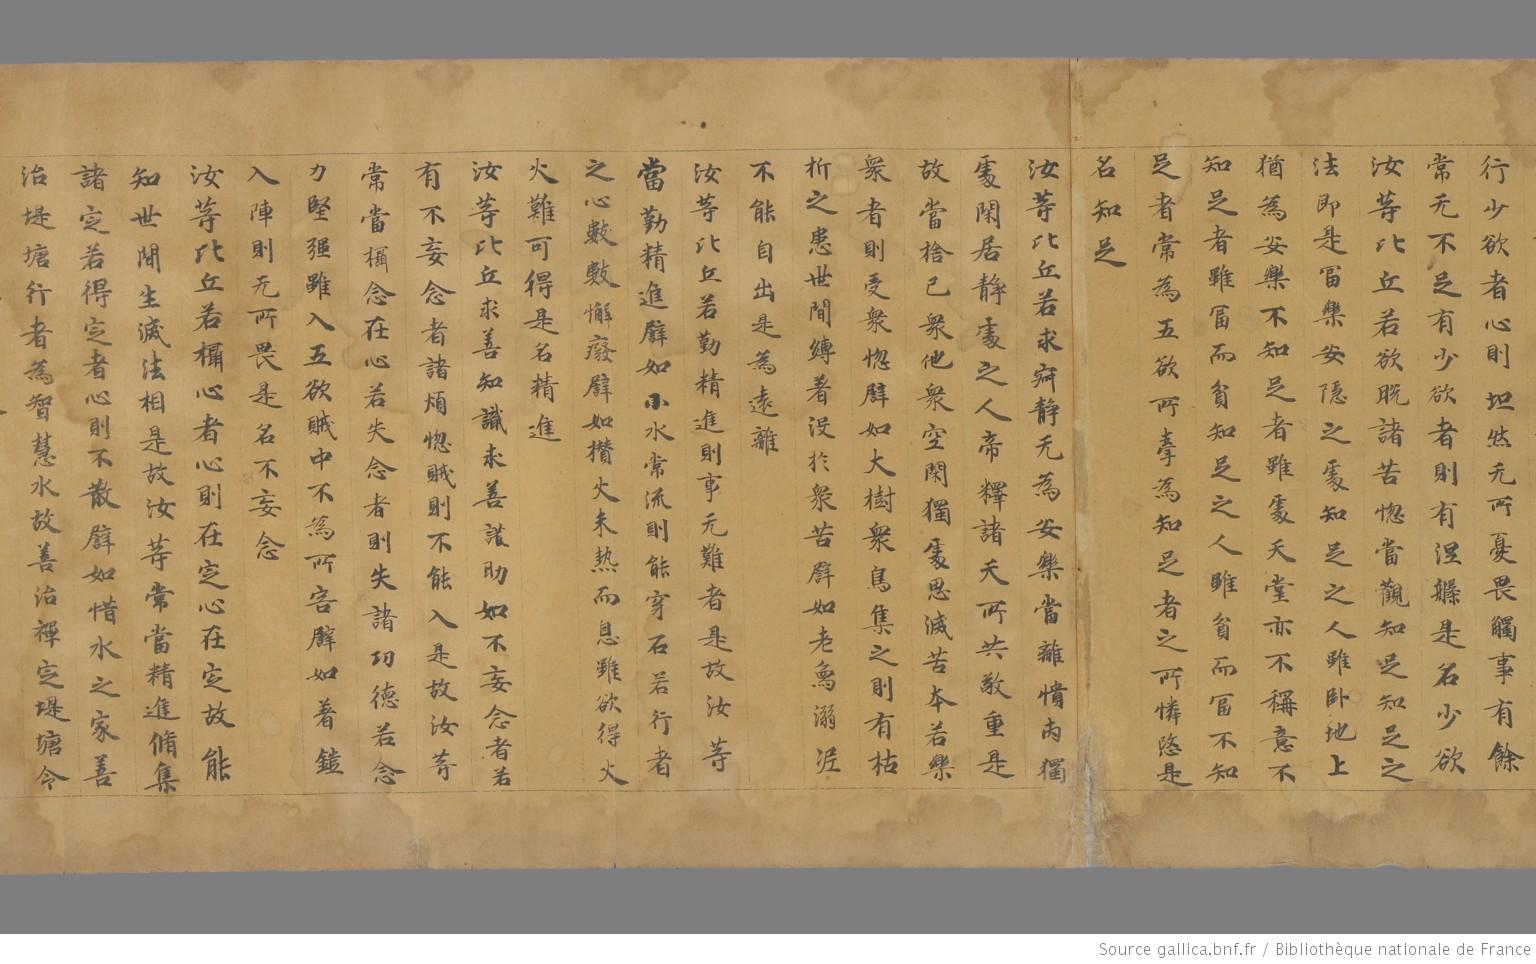 行少欲者心則坦然无所憂畏觸事有餘
常无不足有少欲者則有涅槃是名少欲
汝等比丘若欲脫諸苦惱當觀知足知足之
法即是冨樂安隱之處知足之人雖卧地上
猶為安樂不知足者雖處天堂亦不稱意不
知足者雖冨而貧知足之人雖貧而冨不知
足者常為五欲所牽為知足者之所憐愍是
名知足
汝等比丘若求寂静无為安樂當離憒丙獨
處閑居静處之人帝釋諸天所共敬重是
故當捨已衆他衆空閑獨處思滅苦本若樂
衆者則受衆惱譬如大樹衆鳥集之則有枯
折之患世間縛著没於衆苦譬如老象溺泥
不能自出是為遠離
汝等比丘若勤精進則事无難者是故汝等
當勤精進譬如小水常流則能穿石若行者
之心數數懈癈譬如攢火未熱而息雖欲得火
火難可得是名精進
汝等比丘求善知識求善護助如不妄念者若
有不妄念者諸煩惱賊則不能入是故汝等
常當攝念在心若失念者則失諸功德若念
力堅强雖入五欲賊中不為所害譬如著鎧
入陣則无所畏是名不妄念
汝等比丘若攝心者心則在定心在定故能
知世間生滅法相是故汝等常當精進脩集
諸定若得定者心則不散譬如惜水之家善
治堤塘行者為智慧水故善治禪定堤塘令
Source gallica.bnf.fr / Bibliothèque nationale de France